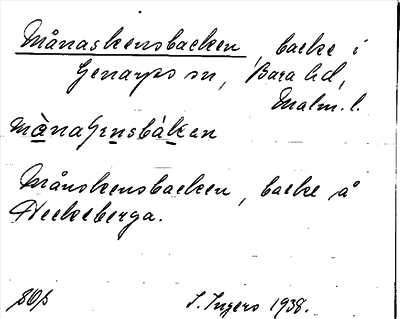 Månaskensbacken, backe i
Genarps sn, Bara hd,
Malm. l.
Månskensbacken, backe å
Heckeberga.
S. Ingers 1938.